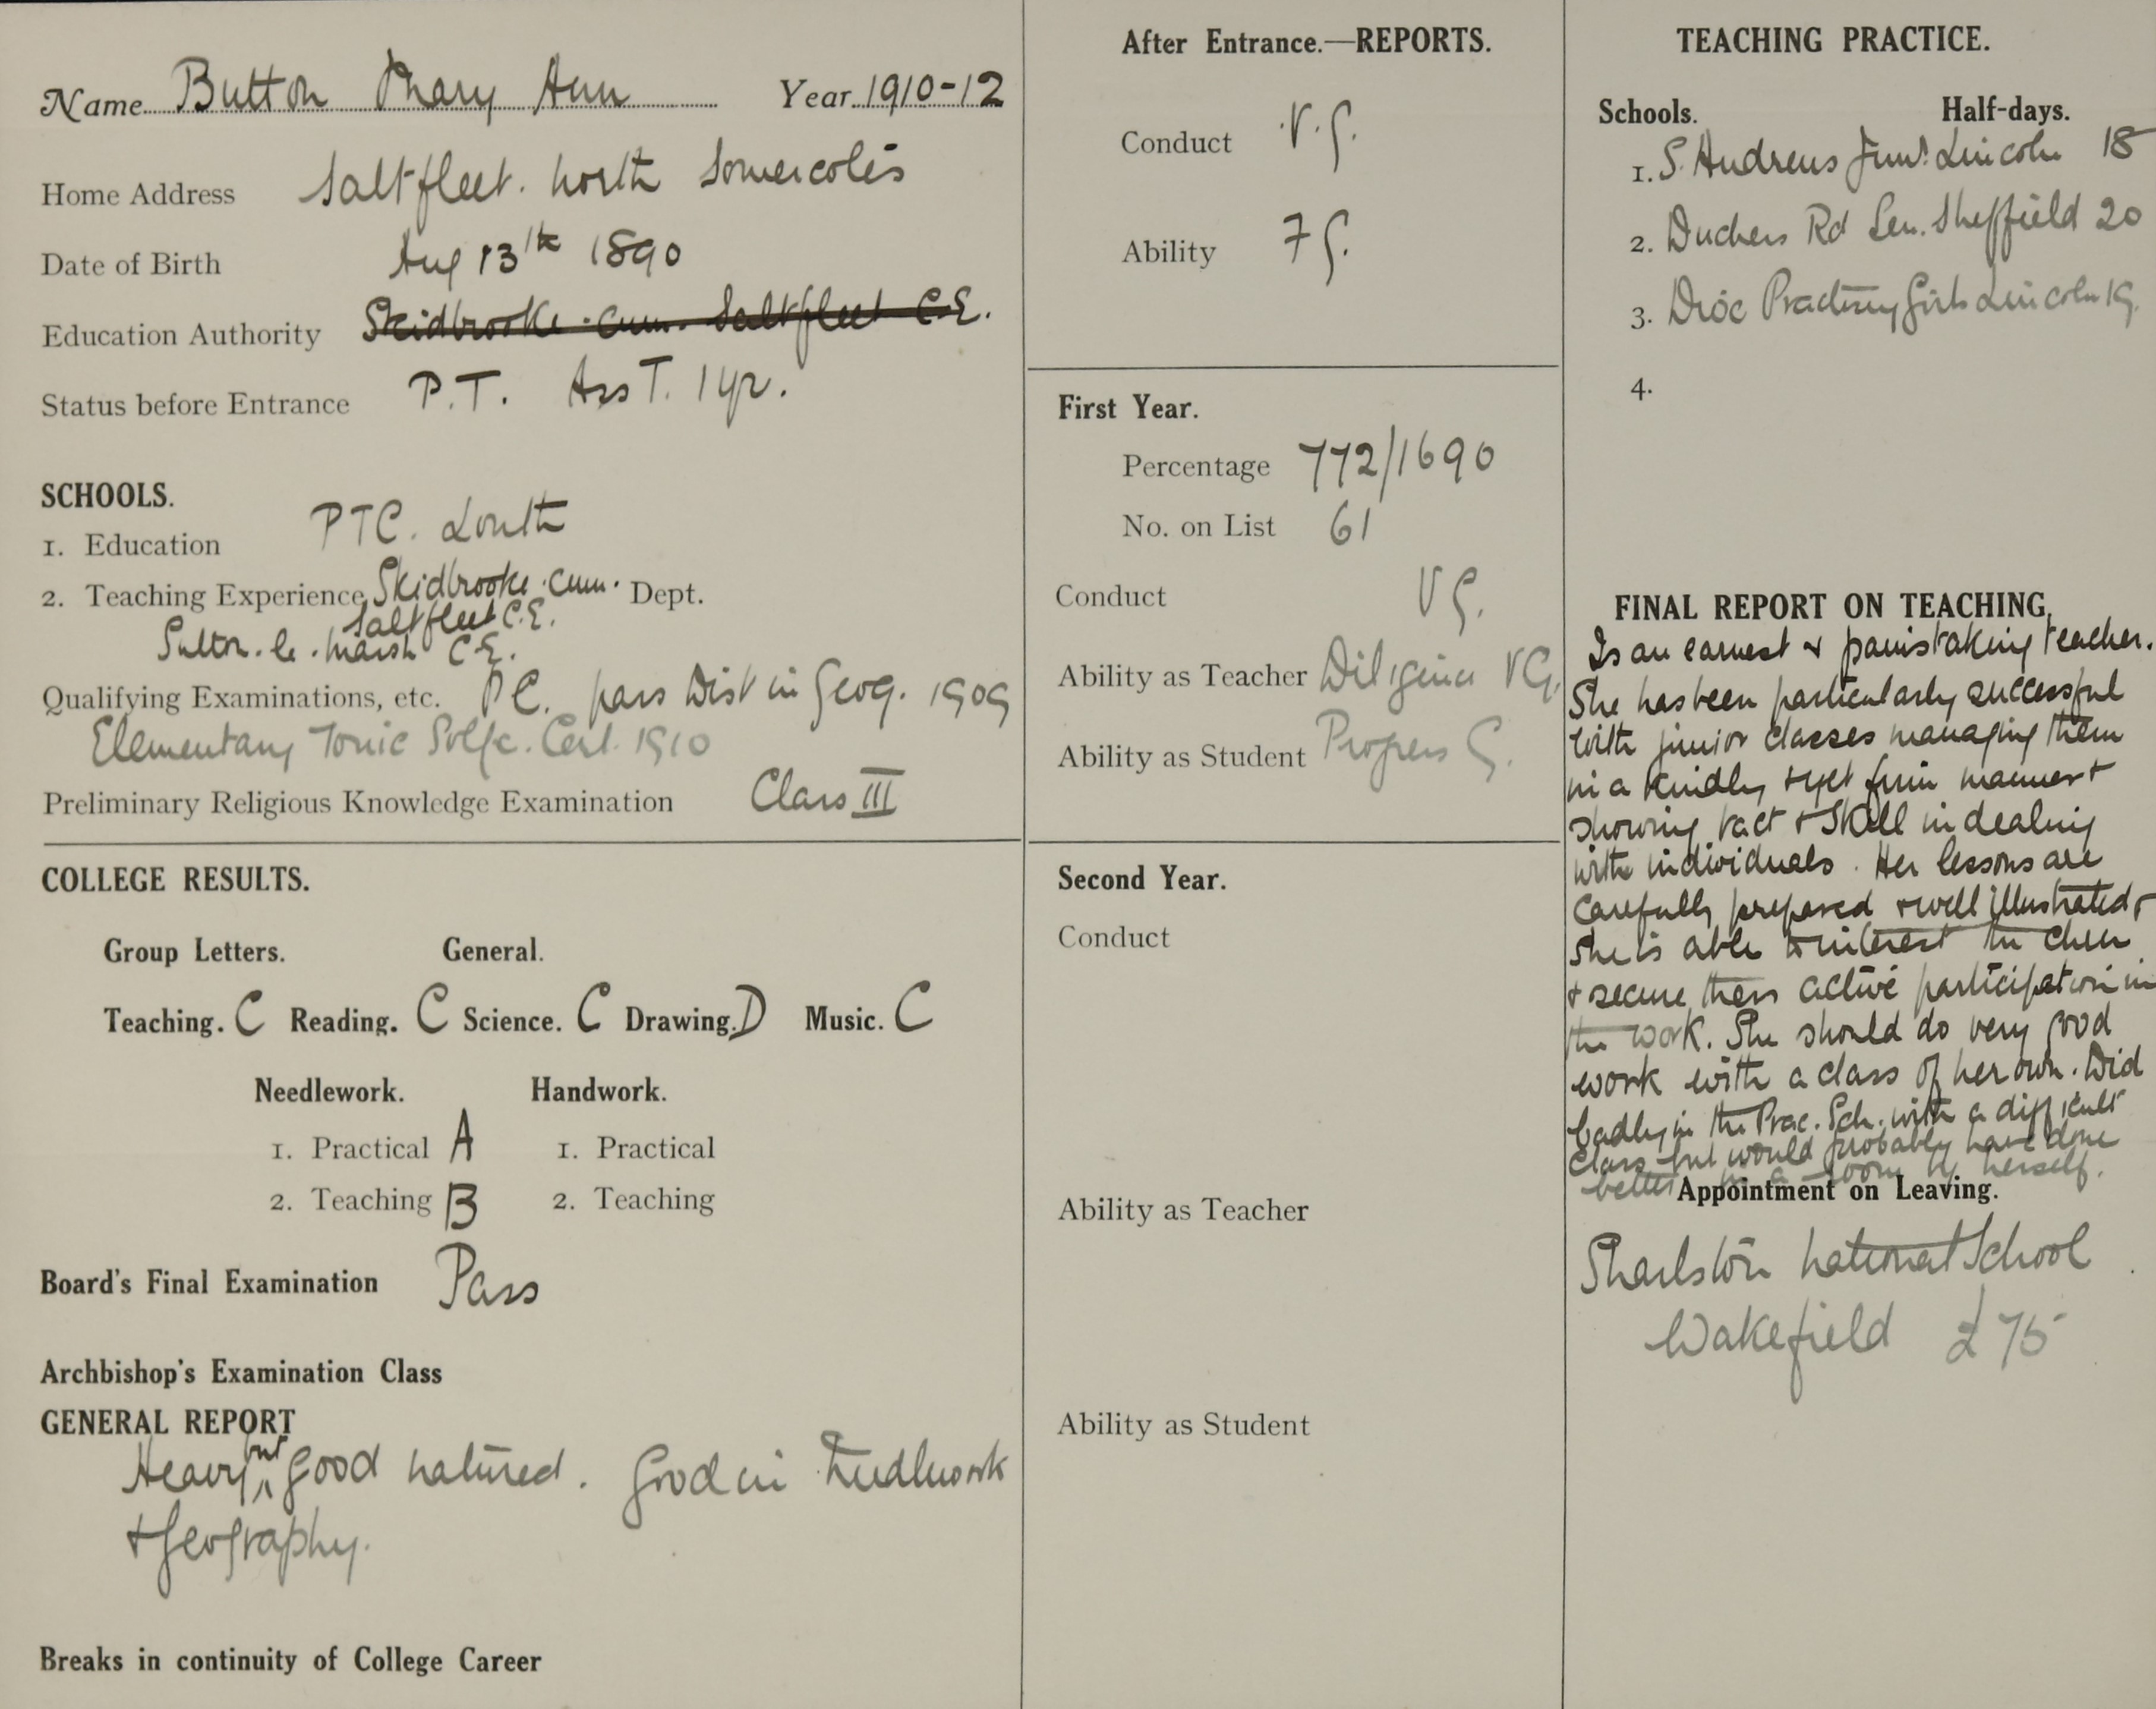 Name Button Mary Ann Year 1910-12
Home Address Saltfleet. North Somercotes
Date of Birth Aug 13th 1890
Education Authority Skidbrooke-cum-Saltfleet C.E.
Status before Entrance P.T. Ass T. 1 yr.
SCHOOLS.
1. Education PTC. Louth
2. Teaching Experience Skidbrooke-cum- Dept.
Saltfleet C.E.
Sutton-le-Marsh C.E.
Qualifying Examinations, etc. P.C. pass Dist in Geog. 1909
Elementary Tonic Solfa. Cert. 1910
Preliminary Religious Knowledge Examination Class III
COLLEGE RESULTS.
Group Letters. General.
Teaching. C Reading. C Science. C Drawing. D Music. C
Needlework. Handwork.
1. Practical A 1. Practical
2. Teaching B 2. Teaching
Board's Final Examination Pass
Archbishop's Examination Class
GENERAL REPORT
Heavy but good natured. Good in Needlework
+ Geography.
Breaks in continuity of College Career
After Entrance.—REPORTS.
Conduct V.G.
Ability F G.
First Year.
Percentage 772/1690
No. on List 61
Conduct V G.
Ability as Teacher Diligence VG.
Ability as Student Progress G.
Second Year.
Conduct
Ability as Teacher
Ability as Student
TEACHING PRACTICE.
Schools. Half-days.
1. S. Andrews Junr. Lincoln 18
2. Duchess Rd Sen. Sheffield 20
3. Dioc Practising Girls Lincoln 19.
4.
FINAL REPORT ON TEACHING.
Is an earnest + painstaking teacher.
She has been particularly successful
with junior classes managing them
in a kindly + yet firm manner +
showing tact + skill in dealing
with individuals. Her lessons are
carefully prepared + well illustrated +
she is able to interest the chn
+ secure their active participation in
the work. She should do very good
work with a class of her own. Did
badly in the Prac. Sch. with a difficult
class but would probably have done
better in a room by herself.
Appointment on Leaving.
Sharlston National School
Wakefield £75